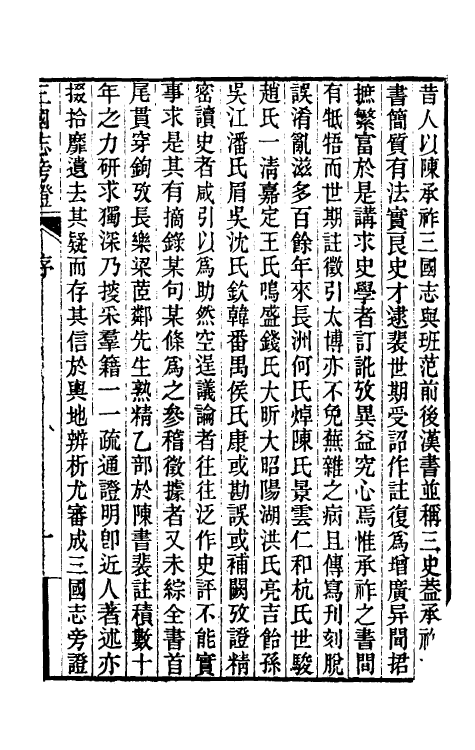 昔人以陳承祚三國志與班范前後漢書並稱三史蓋承祚
書簡質有法實良史才逮裴世期受詔作註復為增廣异聞捃
摭繁富於是講求史學者訂訛攷異益究心焉惟承祚之書間
有牴牾而世期註徵引太博亦不免蕪雜之病且傳寫刊刻脫
誤淆亂滋多百餘年來長洲何氏焯陳氏景雲仁和杭氏世駿
趙氏一清嘉定王氏鳴盛錢氏大昕大昭陽湖洪氏亮吉飴孫
吳江潘氏眉吳沈氏欽韓番禺侯氏康或勘誤或補闕攷證精
密讀史者咸引以爲助然空逞議論者往往泛作史評不能實
事求是其有摘錄某句某條爲之參稽徵據者又未綜全書首
尾貫穿鉤攷長樂梁茝鄰先生熟精乙部於陳書裴註積數十
年之力研求獨深乃掞采羣籍一一疏通證明卽近人著述亦
掇拾靡遺去其疑而存其信於輿地辨析尤審成三國志旁證
三國志旁證 序 一